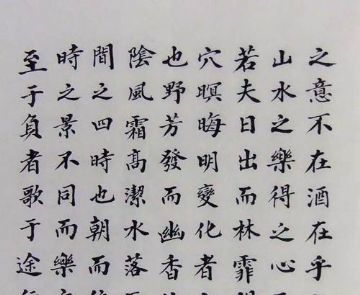 之意不在酒在乎
山水之樂得之心
若夫日出而林霏
穴暝晦明變化者
也野芳發而幽香
陰風霜高潔水落
間之四時也朝而
時之景不同而樂
至于負者歌于途